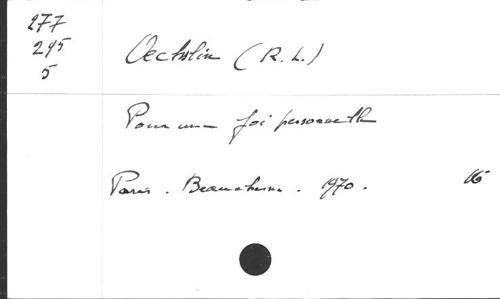 277
295
5
Oechslin (R. L.)
Pour une foi personnelle
Paris. Beauchesne. 1970.